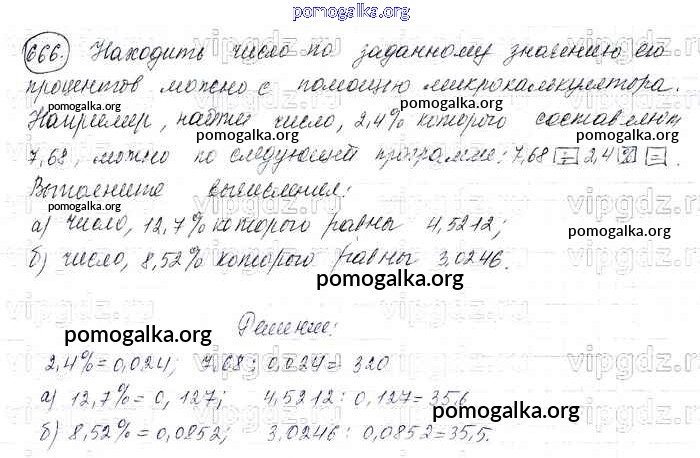 pomogalka.org
666. Находить число по заданному значению его
процентов можно с помощью микрокалькулятора.
Например, найти число, 2,4% которого составляют
7,68, можно по следующей программе: 7,68 ÷ 2,4 % = .
Выполните вычисления:
а) число, 12,7% которого равны 4,5212;
б) число, 8,52% которого равны 3,0246.
Решение:
2,4%=0,024; 7,68:0,024=320
а) 12,7%=0,127; 4,5212:0,127=35,6
б) 8,52%=0,0852; 3,0246:0,0852=35,5.